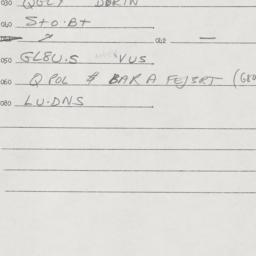 030 QGLY DBRIN
040 S+O.B+
042 —
050 GL8U.S VUS
060 Q POL $ BAR A FEJSRT (GRO
080 LU.DNS